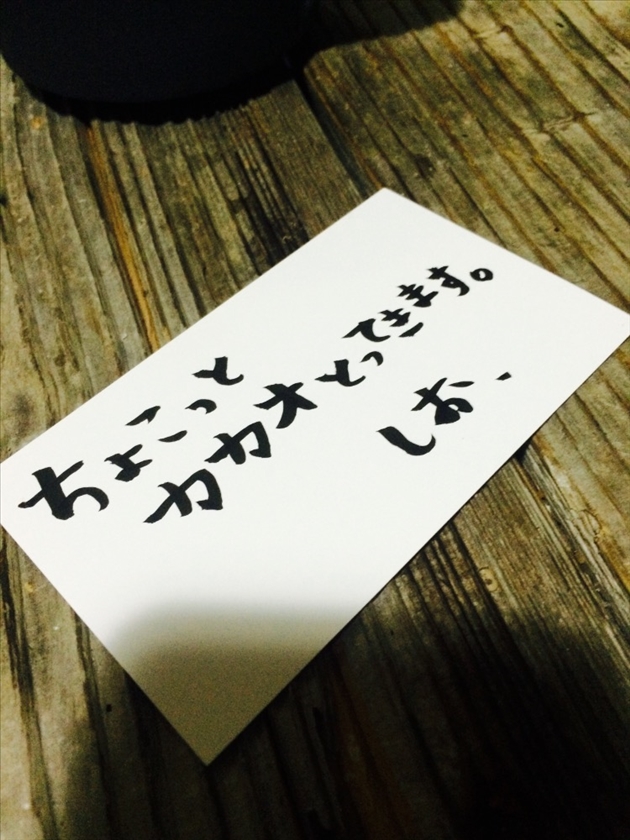 ちょこっと
カカオとってきます。
しお、